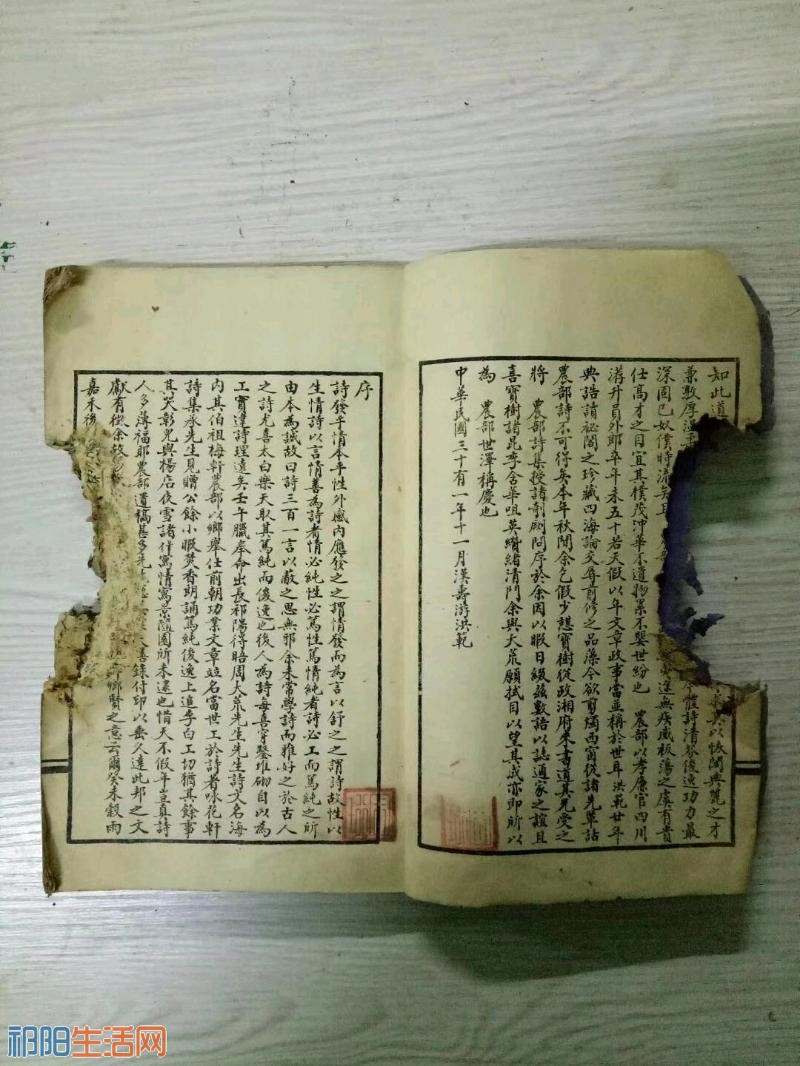 知此道
兼數厚
深固已奴僕時流矣
仕高才之目宜其樸茂沖華不遺物累不嬰世紛也 農部以孝廉官四川
溝升員外郎卒年未五十若天假以年文章政事當並稱於世年洪範廿年
典誥請祕閣之珍藏四海論交尋前修之品藻今欲剪燭西窗從諸先輩話
農部詩不可得矣本年秋間余乞假少憩寶樹從政湘府來書道其兄受之
將 農部詩集授諸剞劂問序於余因以暇日綴蕪數語以誌通家之誼且
喜寶樹諸昆季含華咀英纘緒清門余與大荒願拭目以望其成亦即所以
為 農部世澤稱慶也
中華民國三十有一年十一月漢壽游洪範
體詩清蒼後逸功力最
以恢閎典麗之才
達無疾戚板蕩之虞有貴
序
詩發乎情本乎性外感內應發之之謂情發而為言以舒之之謂詩故性以
生情詩以言情善為詩者情必純性必篤性篤情純者詩必工而篤純之所
由本為誠故曰詩三百一言以蔽之思無邪余未嘗學詩而雅好之於古人
之詩尤喜太白樂天取其篤純而俊逸也後人為詩每喜穿鑿堆砌自以為
工實違詩理遠矣壬午臘奉命出長祁陽得晤周大荒先生先生詩文名海
內其伯祖梅軒農部以鄉舉仕前朝功業文章竝名當世工於詩者咏花軒
詩集承先生見贈公餘小暇焚香朗誦篤純後逸上追李白工切猶其餘事
其哭彰兒與楊店夜雪諸什篤情寫景隨園所未逮也惜天不假年豈真詩
人多薄福耶農部遺稿甚多
喜錄付印以垂久遠此邦之文
獻有徵余故
鄉賢之意云爾癸未穀雨
嘉禾後
祁阳生活网